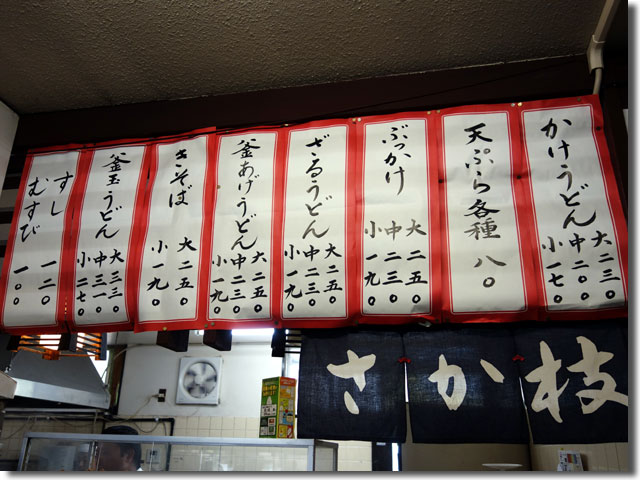 かけうどん
大二三〇
中二〇〇
小一七〇
天ぷら各種 八〇
ぶっかけ
大二五〇
中二三〇
小一九〇
ざるうどん
大二五〇
中二三〇
小一九〇
釜あげうどん
大二五〇
中二三〇
小一九〇
きそば
大二五〇
小一九〇
釜玉うどん
大三三〇
中三一〇
小二七〇
すし 一二〇
むすび 一〇〇
さか枝